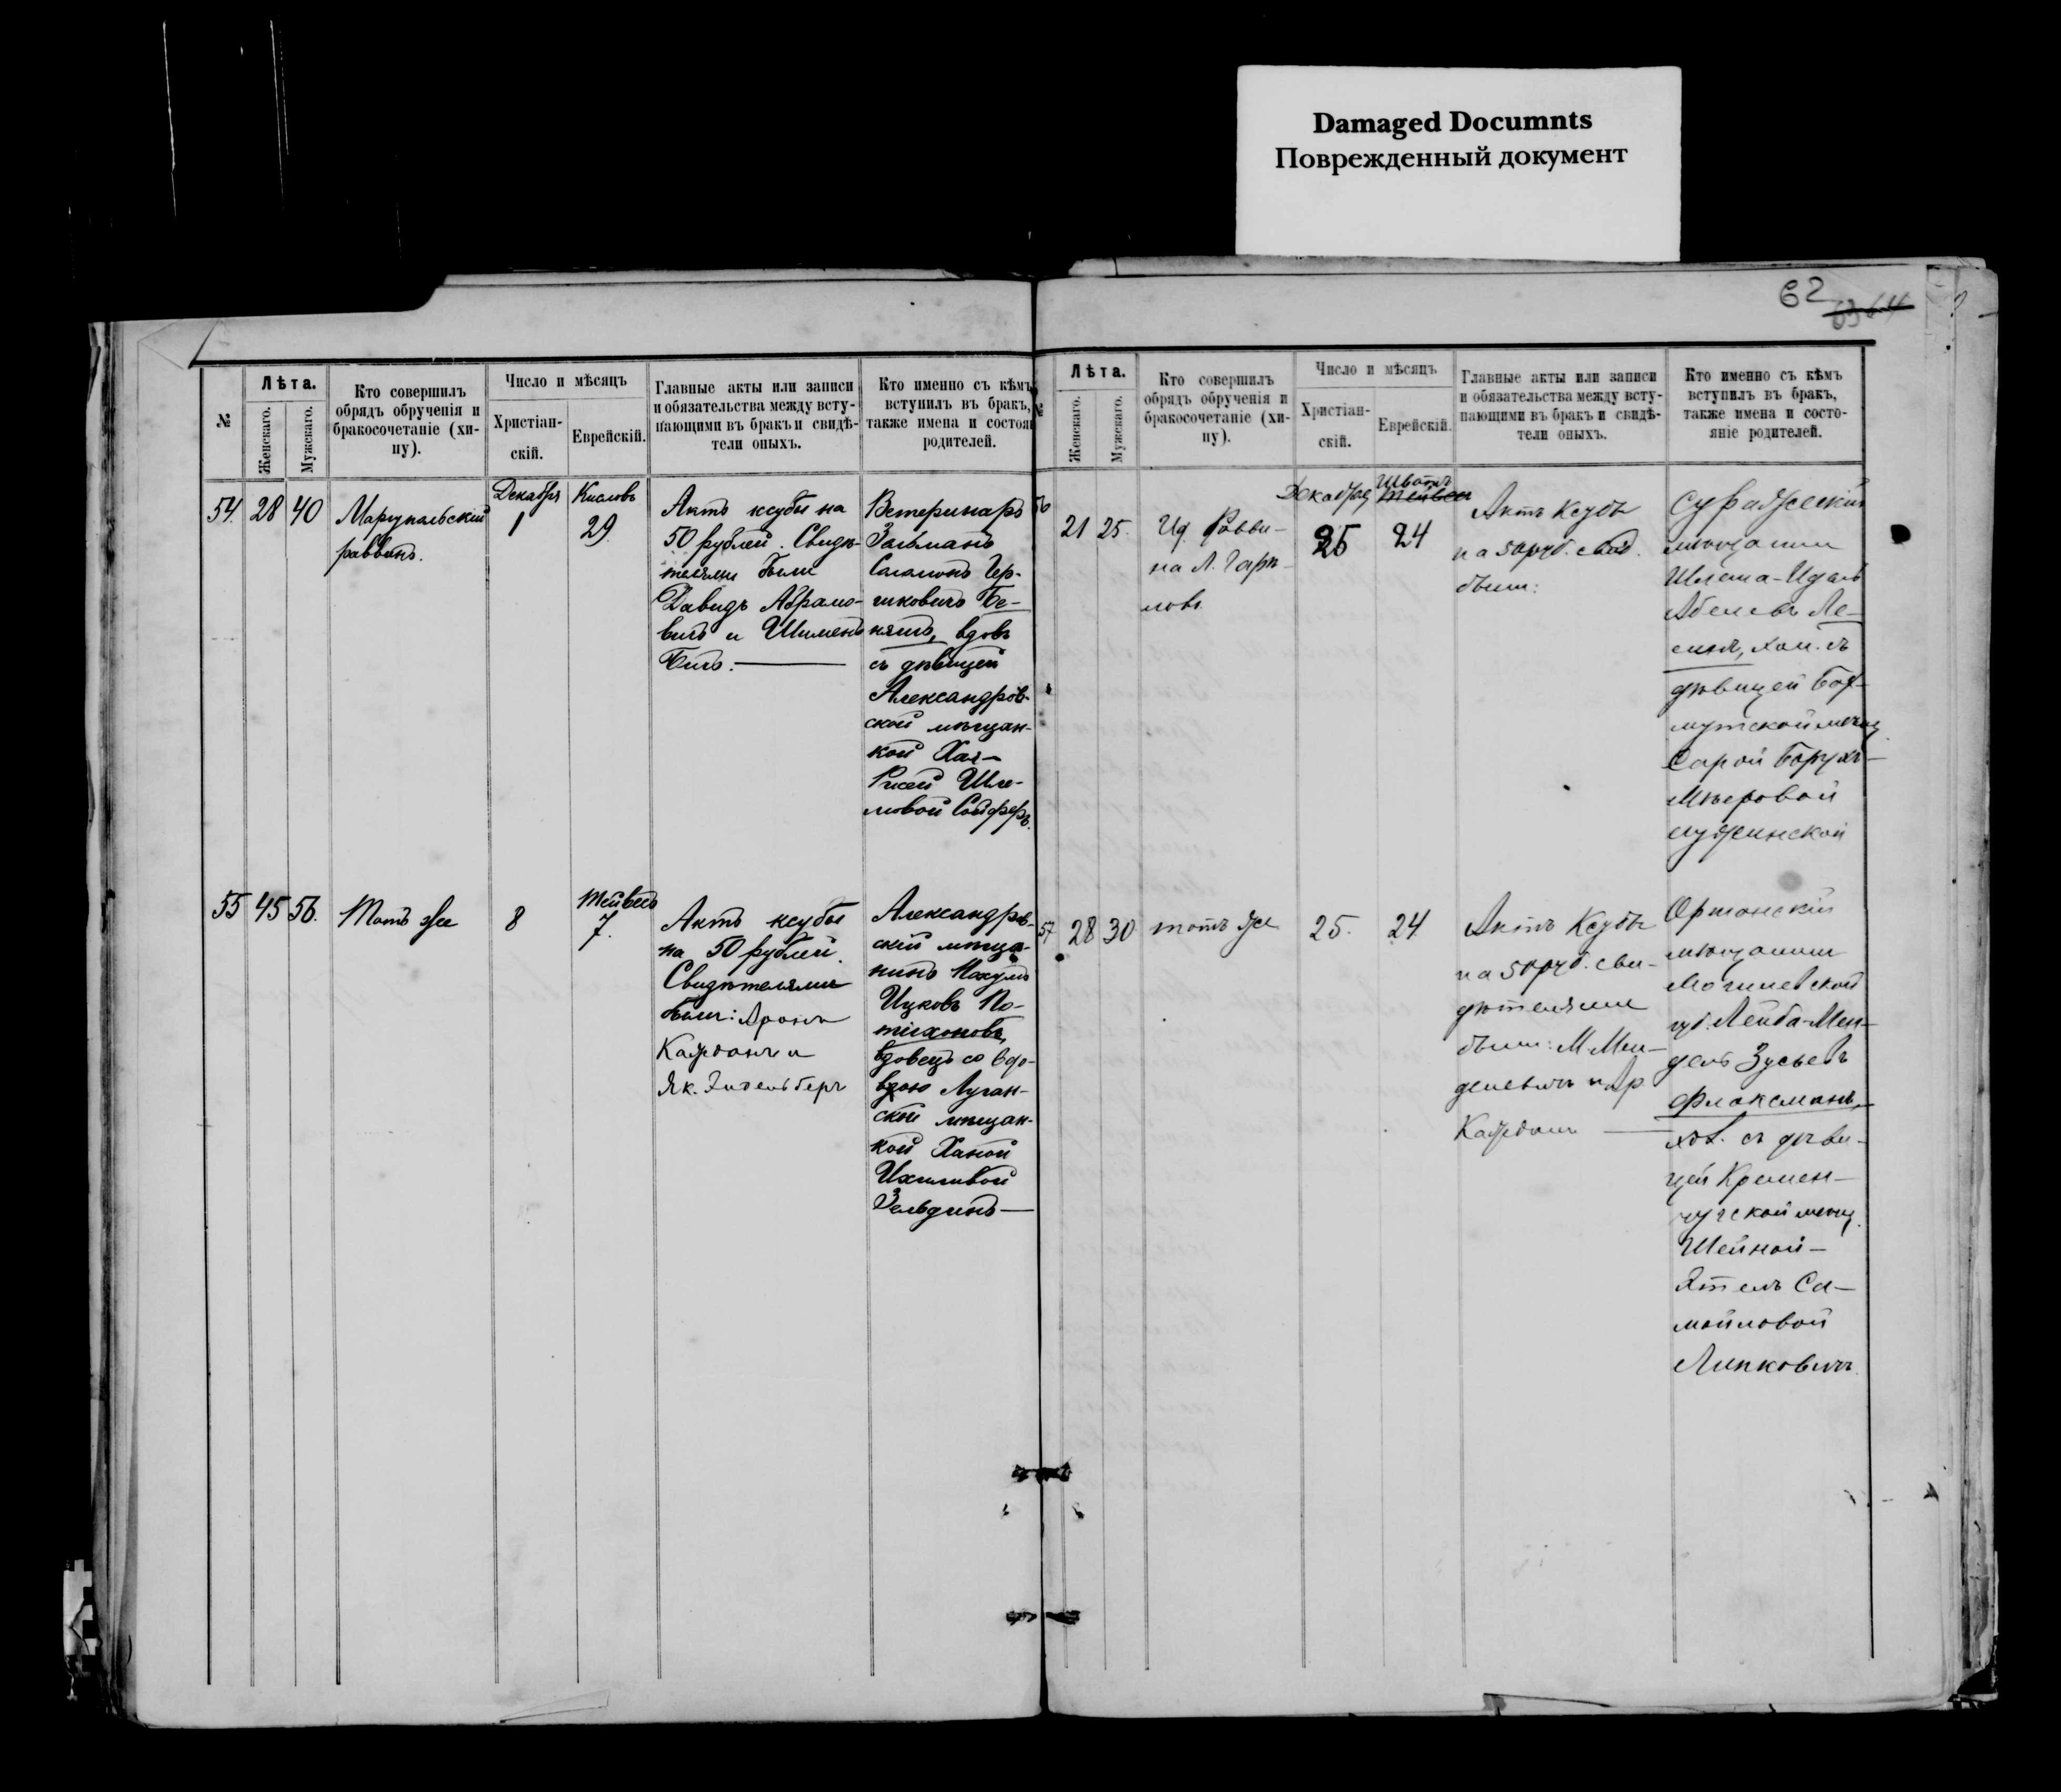 Damaged Documnts
Поврежденный документ
62
63 64
№
Лѣта.
Женскаго.
Мужскаго.
Кто совершилъ
обрядъ обрученія и
бракосочетаніе (хи-
пу).
Число и мѣсяцъ
Христіан-
скій.
Еврейскій.
Главные акты или записи
и обязательства между всту-
пающими въ бракъ и свидѣ-
тели оныхъ.
Кто именно съ кѣмъ
вступилъ въ бракъ,
также имена и состоя
родителей.
54. 28 40
Маріупальскій
раввинъ.
Декабря
1
Кислевъ
29.
Актъ ксубы на
50 рублей. Свидѣ-
телями были
Давидъ Абрамо-
вичъ и Шименъ
Ветеринаръ
Зальманъ
Саламонъ Гер-
шковичъ
вдовъ
съ дѣвицей
Александров-
ской мѣщан-
кой Хая-
Рисей Шле-
мовой Сойферъ.
55 45 56.
Тотъ же
8
Тейвесъ
7.
Актъ ксубы
на 50 рублей.
Свидѣтелями
были: Аронъ
Кагданъ и
Як. Эйдельберг
Александров-
скій мѣща-
нинъ Нахумъ
Ицковъ По-
тихоновъ,
вдовецъ со вдо-
вою Луган-
ской мѣщан-
кой Ханой
Ихиливой
Зельдинъ
№
Лѣта.
Женскаго.
Мужскаго.
Кто совершилъ
обрядъ обрученія и
бракосочетаніе (хи-
пу).
Число и мѣсяцъ
Христіан-
скій.
Еврейскій.
Главные акты или записи
и обязательства между всту-
пающими въ бракъ и свидѣ-
тели оныхъ.
Кто именно съ кѣмъ
вступилъ въ бракъ,
также имена и состо-
яніе родителей.
56
21 25.
Ид. Равви-
на Л.
Декабря
25
Шватъ
Тейвесъ
24
Актъ Ксубы
на 50 руб. свид.
были:
Суражскій
мѣщанин
Шлема-Идаль
Абелевъ Ле-
винъ, хол. съ
дѣвицей Бах-
мутской мѣщ.
Сарой Борухъ-
Мѣеровой
57 28 30
тотъ же
25.
24
Актъ Ксубы
на 50 руб. сви-
дѣтелями
были: М. Мен-
делевичъ и Ар.
Кагданъ
Оршанскій
мѣщанин
Могилевской
губ. Лейба-Мен-
дель Зусьевъ
Флаксманъ,
хол. съ дѣви-
цей Кремен-
чугской мѣщ.
Шейной-
Этель Са-
мойловой
Липковичъ.